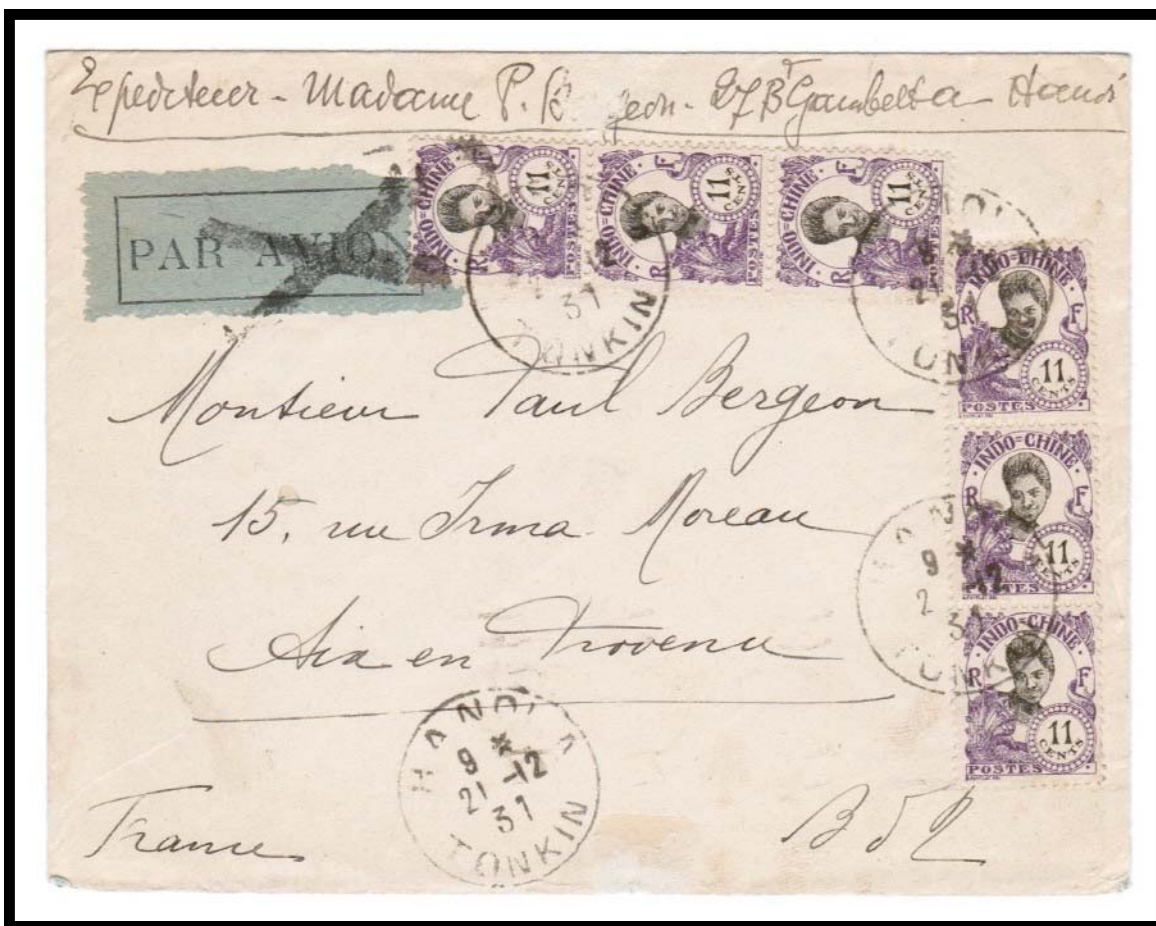 Expediteur - Madame P. B geon - 27 Bd Gambetta Hanoi
PAR AVION
INDO=CHINE R F 11 CENTS POSTES
INDO=CHINE R F 11 CENTS POSTES
INDO=CHINE R F 11 CENTS POSTES
INDO=CHINE R F 11 CENTS POSTES
INDO=CHINE R F 11 CENTS POSTES
INDO=CHINE R F 11 CENTS POSTES
TONKIN
31
Monsieur Paul Bergeon
15, rue Irma Moreau
Aix en Provence
HANOI - A
9 *
21 -12
31
TONKIN
France
B d R